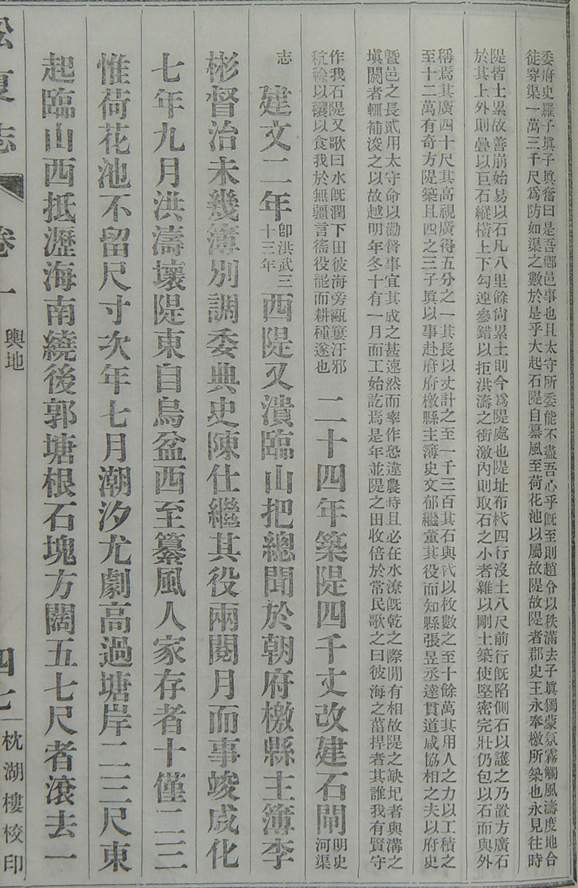 委府史羅子眞子眞奮曰是吾鄰邑事也且太守所委能不盡吾心乎旣至則趙分以秩滿去子眞獨蒙氛霧觸風濤度地合
徒穿渠一萬三千尺爲防如渠之數於是乎大起石隄自纂風至荷花池以屬故隄故隄者郡史王永奉檄所築也永見往時
隄皆土累故善崩始易以石凡八里餘尙累土則今爲隄處也隄址布杙四行沒土八尺前行旣陷側石以護之乃置方廣石
於其上外則疊以巨石縱橫上下勾連參錯以拒洪濤之衝激內則取石之小者雜以剛土築使堅密完壯仍包以石而與外
稱焉其廣四十尺其高視廣得五分之一其長以丈計之至一千三百其石與杙以枚數之至十餘萬其用人之力以工積之
至十二萬有奇方隄築且四之三子眞以事赴府府檄縣主簿史文郁繼董其役而知縣張昱丞達貫道咸協相之夫以府史
曁邑之長貳用太守命以勸督事宜其成之甚速然而率作恐違農時且必在水潦旣乾之際閒有相故隄之缺圮者與溝之
塡閼者輒補浚之以故越明年冬十有一月而工始訖焉是年並隄之田收倍於常民歌之曰彼海之菑捍者其誰我有賢守
作我石隄又歌曰水旣潤下田彼海旁甌窶汙邪
秔稌以穰以食我於無疆言徭役罷而耕種遂也 二十四年築隄四千丈改建石閘 明史河渠
志 建文二年 卽洪武三十三年 西隄又潰臨山把總聞於朝府檄縣主簿李
彬督治未幾簿別調委典史陳仕繼其役兩閱月而事竣成化
七年九月洪濤壞隄東自烏盆西至纂風人家存者十僅二三
惟荷花池不留尺寸次年七月潮汐尤劇高過塘岸二三尺東
起臨山西抵瀝海南繞後郭塘根石塊方闊五七尺者滾去一
松夏志 卷一 輿地 四七 枕湖樓校印